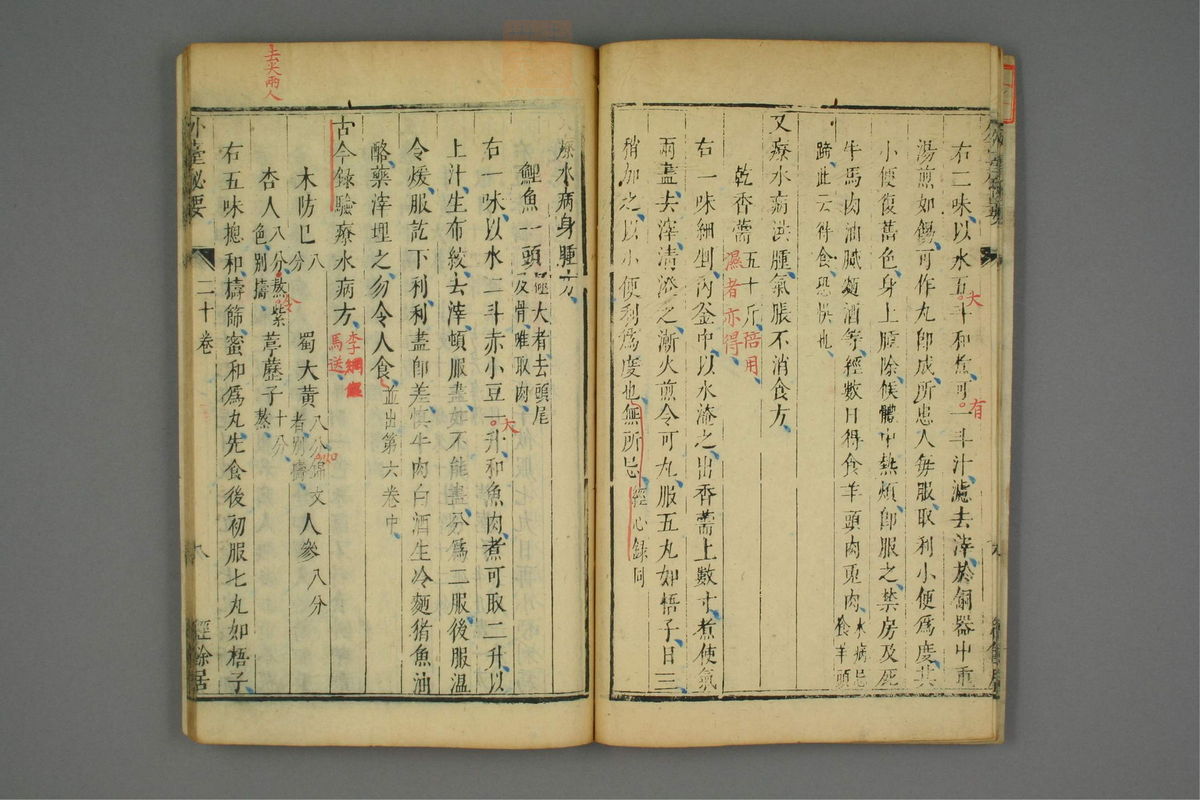 右二味以水五斗和煮可一斗汁濾去滓於銅器中重
大
有
湯煎如餳可作丸即成所患人每服取利小便爲度其
小便復舊色身上腫除候體中熱煩即服之禁房及死
牛馬肉油膩麵酒等經數日得食羊頭肉兎肉水病忌食羊頭
蹄此云得食恐悞也
又療水病洪腫氣脹不消食方
乾香薷五十斤
濕者亦得倍用
右一味細剉内釜中以水淹之出香薷上數寸煮使氣
兩盡去滓清澄之漸火煎令可丸服五丸如梧子日三
稍加之以小便利爲度也無所忌經心録同
療水病身腫方
鯉魚一頭極大者去頭尾及骨唯取肉
右一味以水二斗赤小豆一升和魚肉煮可取二升以
大
上汁生布絞去滓頓服盡如不能盡分爲二服後服温
令煖服訖下利利盡即差慎牛肉白酒生冷麵猪魚油
酪藥滓埋之勿令人食並出第六卷中
古今録驗療水病方
李
馬送
去尖兩人
木防已八分 蜀大黄八分錦文者別擣 人參八分
杏人八分熬紫色別擣 葶藶子十分蒸
冷
右五味揔和擣篩蜜和爲丸先食後初服七丸如梧子
外臺秘要
二十卷
八
經餘居